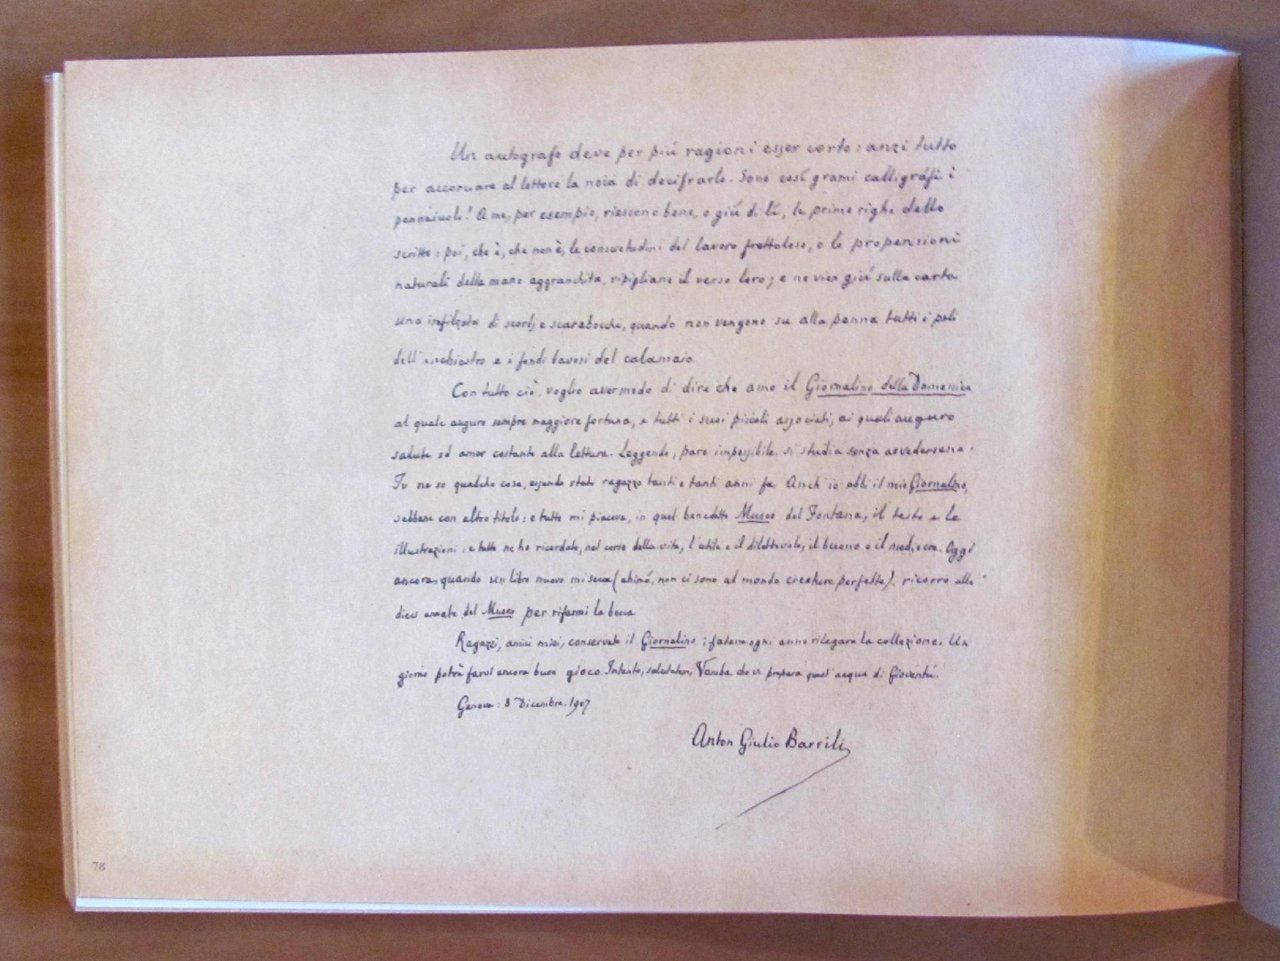 Un autografo deve per più ragioni esser corto: anzi tutto
per accorciare al lettore la noia di decifrarlo. Sono così grami calligrafi i
pennaiuoli! A me, per esempio, riescono bene, o giù di lì, le prime righe dello
scritto: poi, che è, che non è, le consuetudini del lavoro frettoloso, o le propensioni
naturali della mano aggranchita, ripigliano il verso loro; e ne vien giù sulla carta
una infilzata di scorbi e scarabocchi, quando non vengono su alla penna tutti i peli
dell'inchiostro e i fondi bavosi del calamaio.
Con tutto ciò, voglio avermodo di dire che amo il Giornalino della Domenica
al quale auguro sempre maggiore fortuna, e tutti i suoi piccoli associati, ai quali auguro
salute ed amor costante alla lettura. Leggendo, pare impossibile, si studia senza avvedersene.
Io ne so qualche cosa, essendo stato ragazzo tanti e tanti anni fa. Anch'io ebbi il mio Giornalino,
sebbene con altro titolo: e tutto mi piaceva, in quel benedetto Museo del Fontana, il testo e le
illustrazioni: e tutto ne ho ricordato, nel corso della vita, l'utile e il dilettevole, il buono e il mediocre. Oggi
ancora, quando un libro nuovo mi secca (ahimè, non ci sono al mondo creature perfette), ricorro alle
dieci annate del Museo per rifarmi la bocca.
Ragazzi, amici miei, conservate il Giornalino; fatene ogni anno rilegare la collezione. Un
giorno potrà farvi ancora buon gioco. Intanto, salutatemi Vamba che vi prepara quest'acqua di Gioventù.
Genova: 8 Dicembre, 1907
Anton Giulio Barrili
78